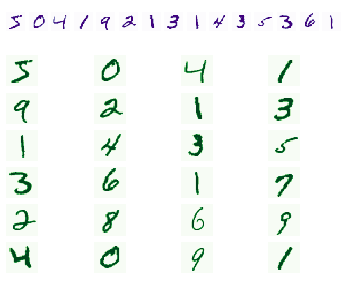 5 0 4 1 9 2 1 3 1 4 3 5 3 6 1
5 0 4 1
9 2 1 3
1 4 3 5
3 6 1 7
2 8 6 9
4 0 9 1